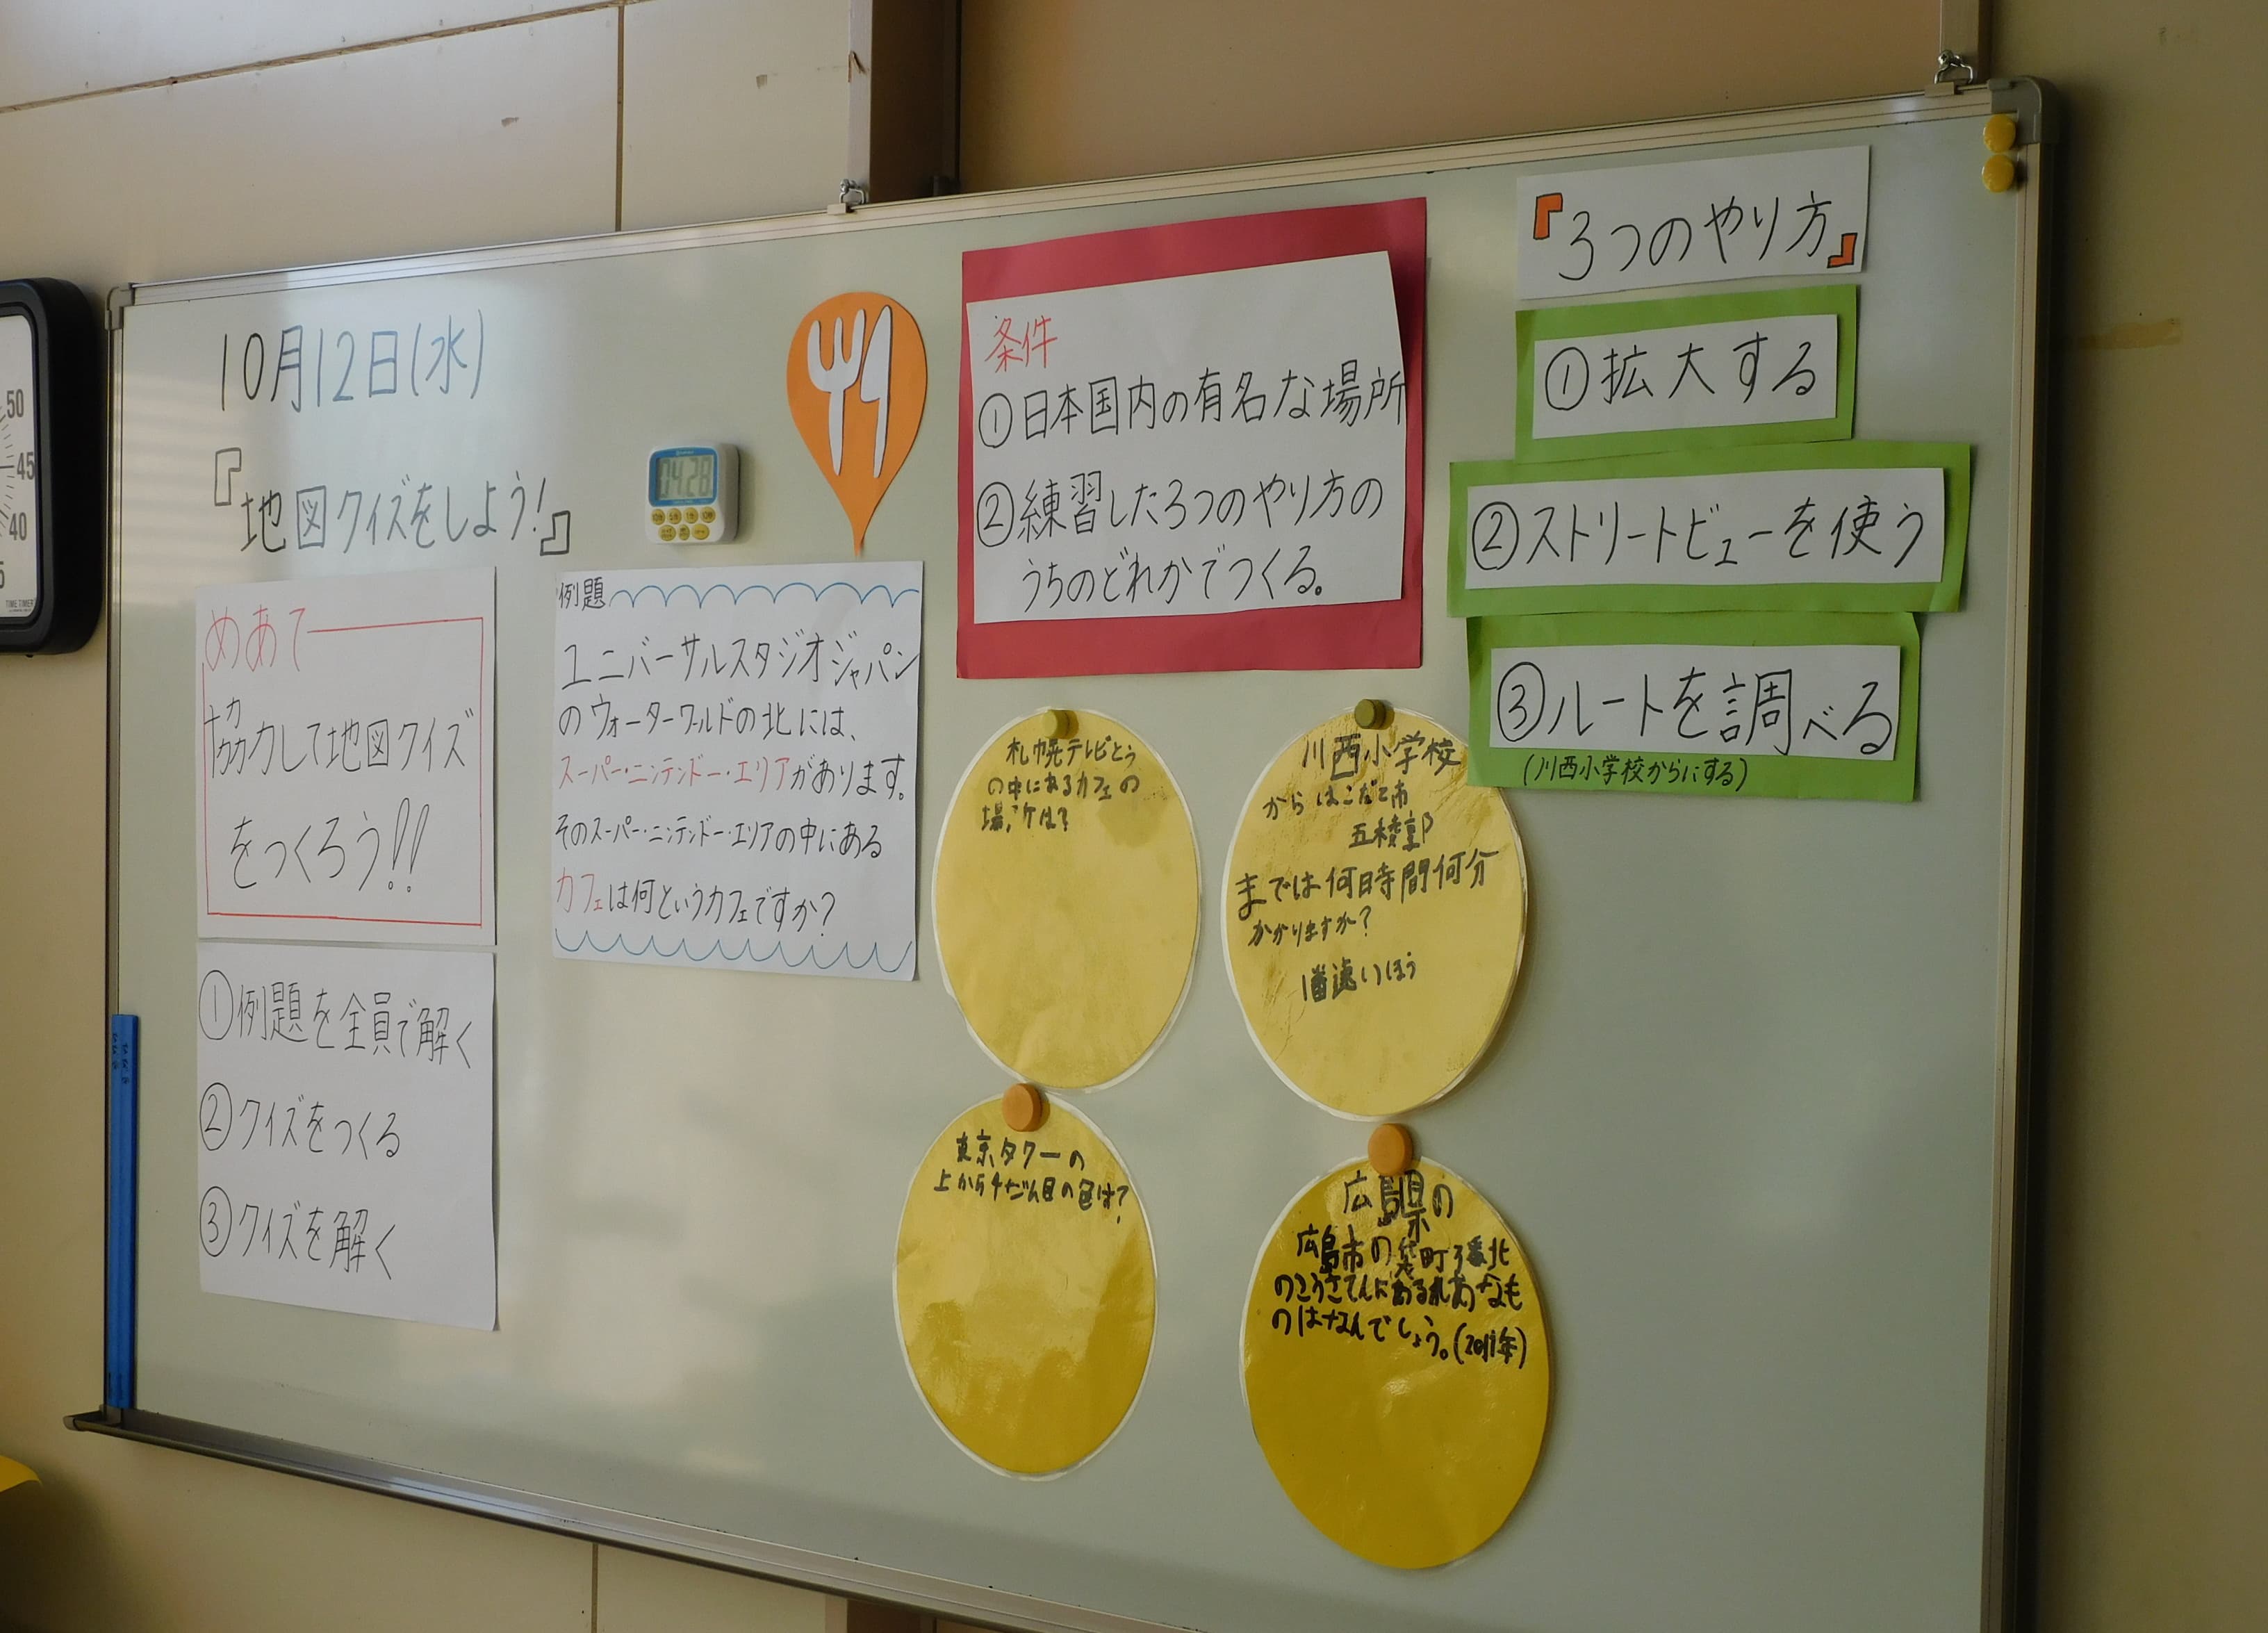 10月12日(水)
『地図クイズをしよう!』
めあて
協力して地図クイズ
をつくろう!!
①例題を全員で解く
②クイズをつくる
③クイズを解く
04:28
例題
ユニバーサルスタジオジャパン
のウォーターワールドの北には、
スーパー・ニンテンドー・エリアがあります。
そのスーパー・ニンテンドー・エリアの中にある
カフェは何というカフェですか?
条件
①日本国内の有名な場所
②練習した3つのやり方の
うちのどれかでつくる。
『3つのやり方』
①拡大する
②ストリートビューを使う
③ルートを調べる
(川西小学校からにする)
札幌テレビとう
の中にあるカフェの
場所は?
川西小学校
からはこだて市
五稜郭
までは何日時間何分
かかりますか?
1番遠いほう
東京タワーの
上から4だん目の色は?
広島県の
広島市の袋町3番北
のこうさてんにある
のはなんでしょう。(2011年)
50
45
40
5
TIME TIMER